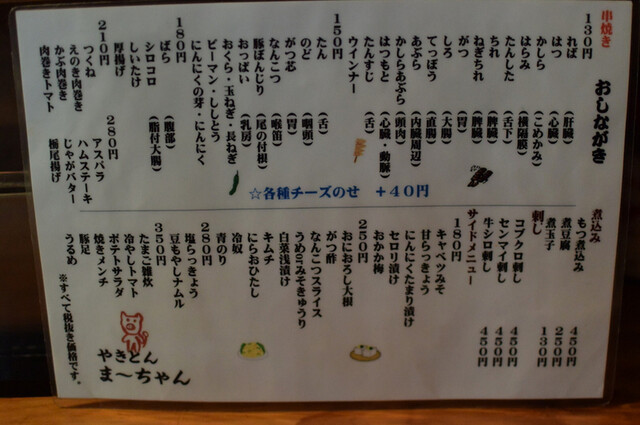 おしながき
串焼き
130円
れば (肝臓)
はつ (心臓)
かしら (こめかみ)
はらみ (横隔膜)
たんした (舌下)
ちれ (脾臓)
ねぎちれ (脾臓)
がつ (胃)
しろ (大腸)
てっぽう (直腸)
あぶら (内臓周辺)
かしらあぶら (頭肉)
はつもと (心臓・動脈)
たんすじ (舌)
ウインナー
150円
たん (舌)
のど (咽頭)
がつ芯 (胃)
なんこつ (喉笛)
豚ぼんじり (尾の付根)
おっぱい (乳房)
おくら・玉ねぎ・長ねぎ
ピーマン・ししとう
にんにくの芽・にんにく
180円
ばら (腹部)
シロコロ (脂付大腸)
しいたけ
厚揚げ
210円
つくね
えのき肉巻き
かぶ肉巻き
肉巻きトマト
280円
アスパラ
ハムステーキ
じゃがバター
栃尾揚げ
☆各種チーズのせ +40円
煮込み
もつ煮込み 450円
煮豆腐 250円
煮玉子 130円
刺し
コブクロ刺し 450円
センマイ刺し 450円
牛シロ刺し 450円
サイドメニュー
180円
キャベツみそ
甘らっきょう
にんにくたまり漬け
セロリ漬け
おかか梅
250円
おにおろし大根
がつ酢
なんこつスライス
うめorみそきゅうり
白菜浅漬け
キムチ
にらおひたし
冷奴
青のり
280円
塩らっきょう
豆もやしナムル
350円
たまご雑炊
冷やしトマト
ポテトサラダ
焼きメンチ
豚足
うるめ
※すべて税抜き価格です。
やきとん
ま〜ちゃん